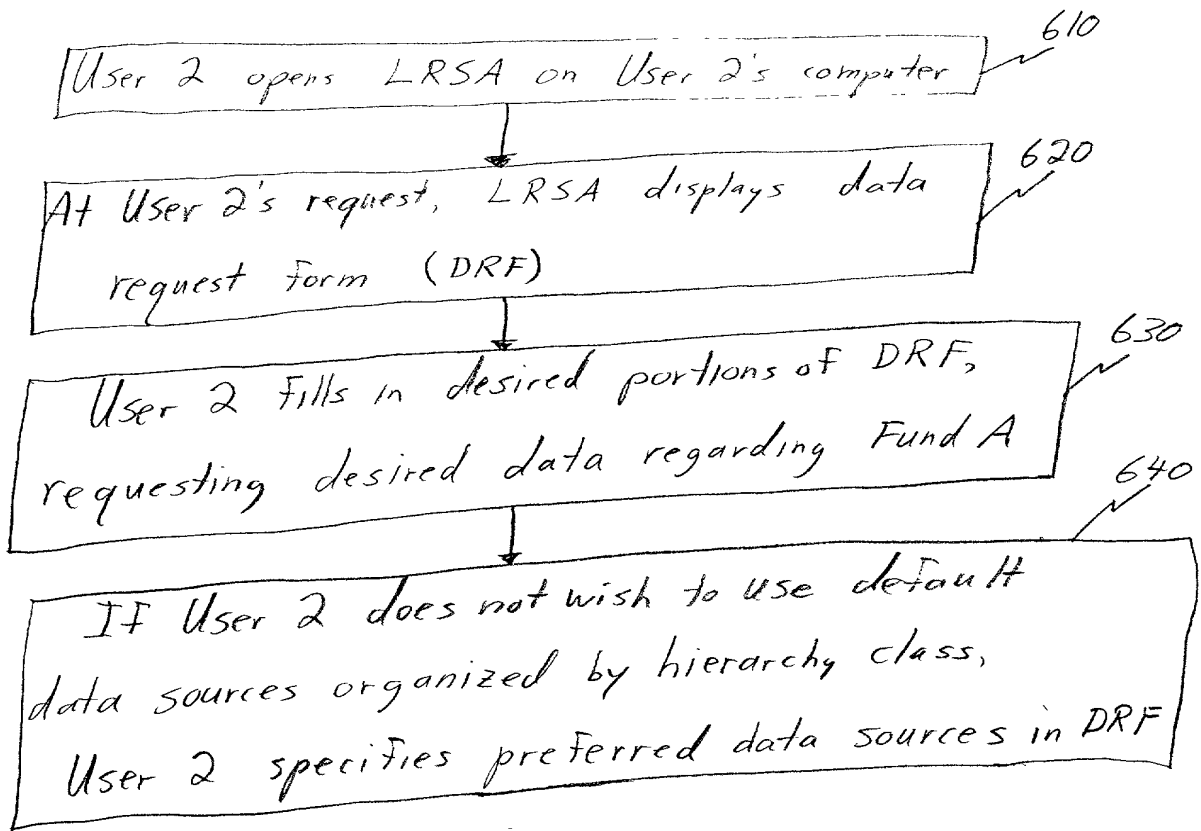 610
User 2 opens LRSA on User 2's computer
620
At User 2's request, LRSA displays data
request form (DRF)
630
User 2 fills in desired portions of DRF,
requesting desired data regarding Fund A
640
If User 2 does not wish to use default
data sources organized by hierarchy class,
User 2 specifies preferred data sources in DRF